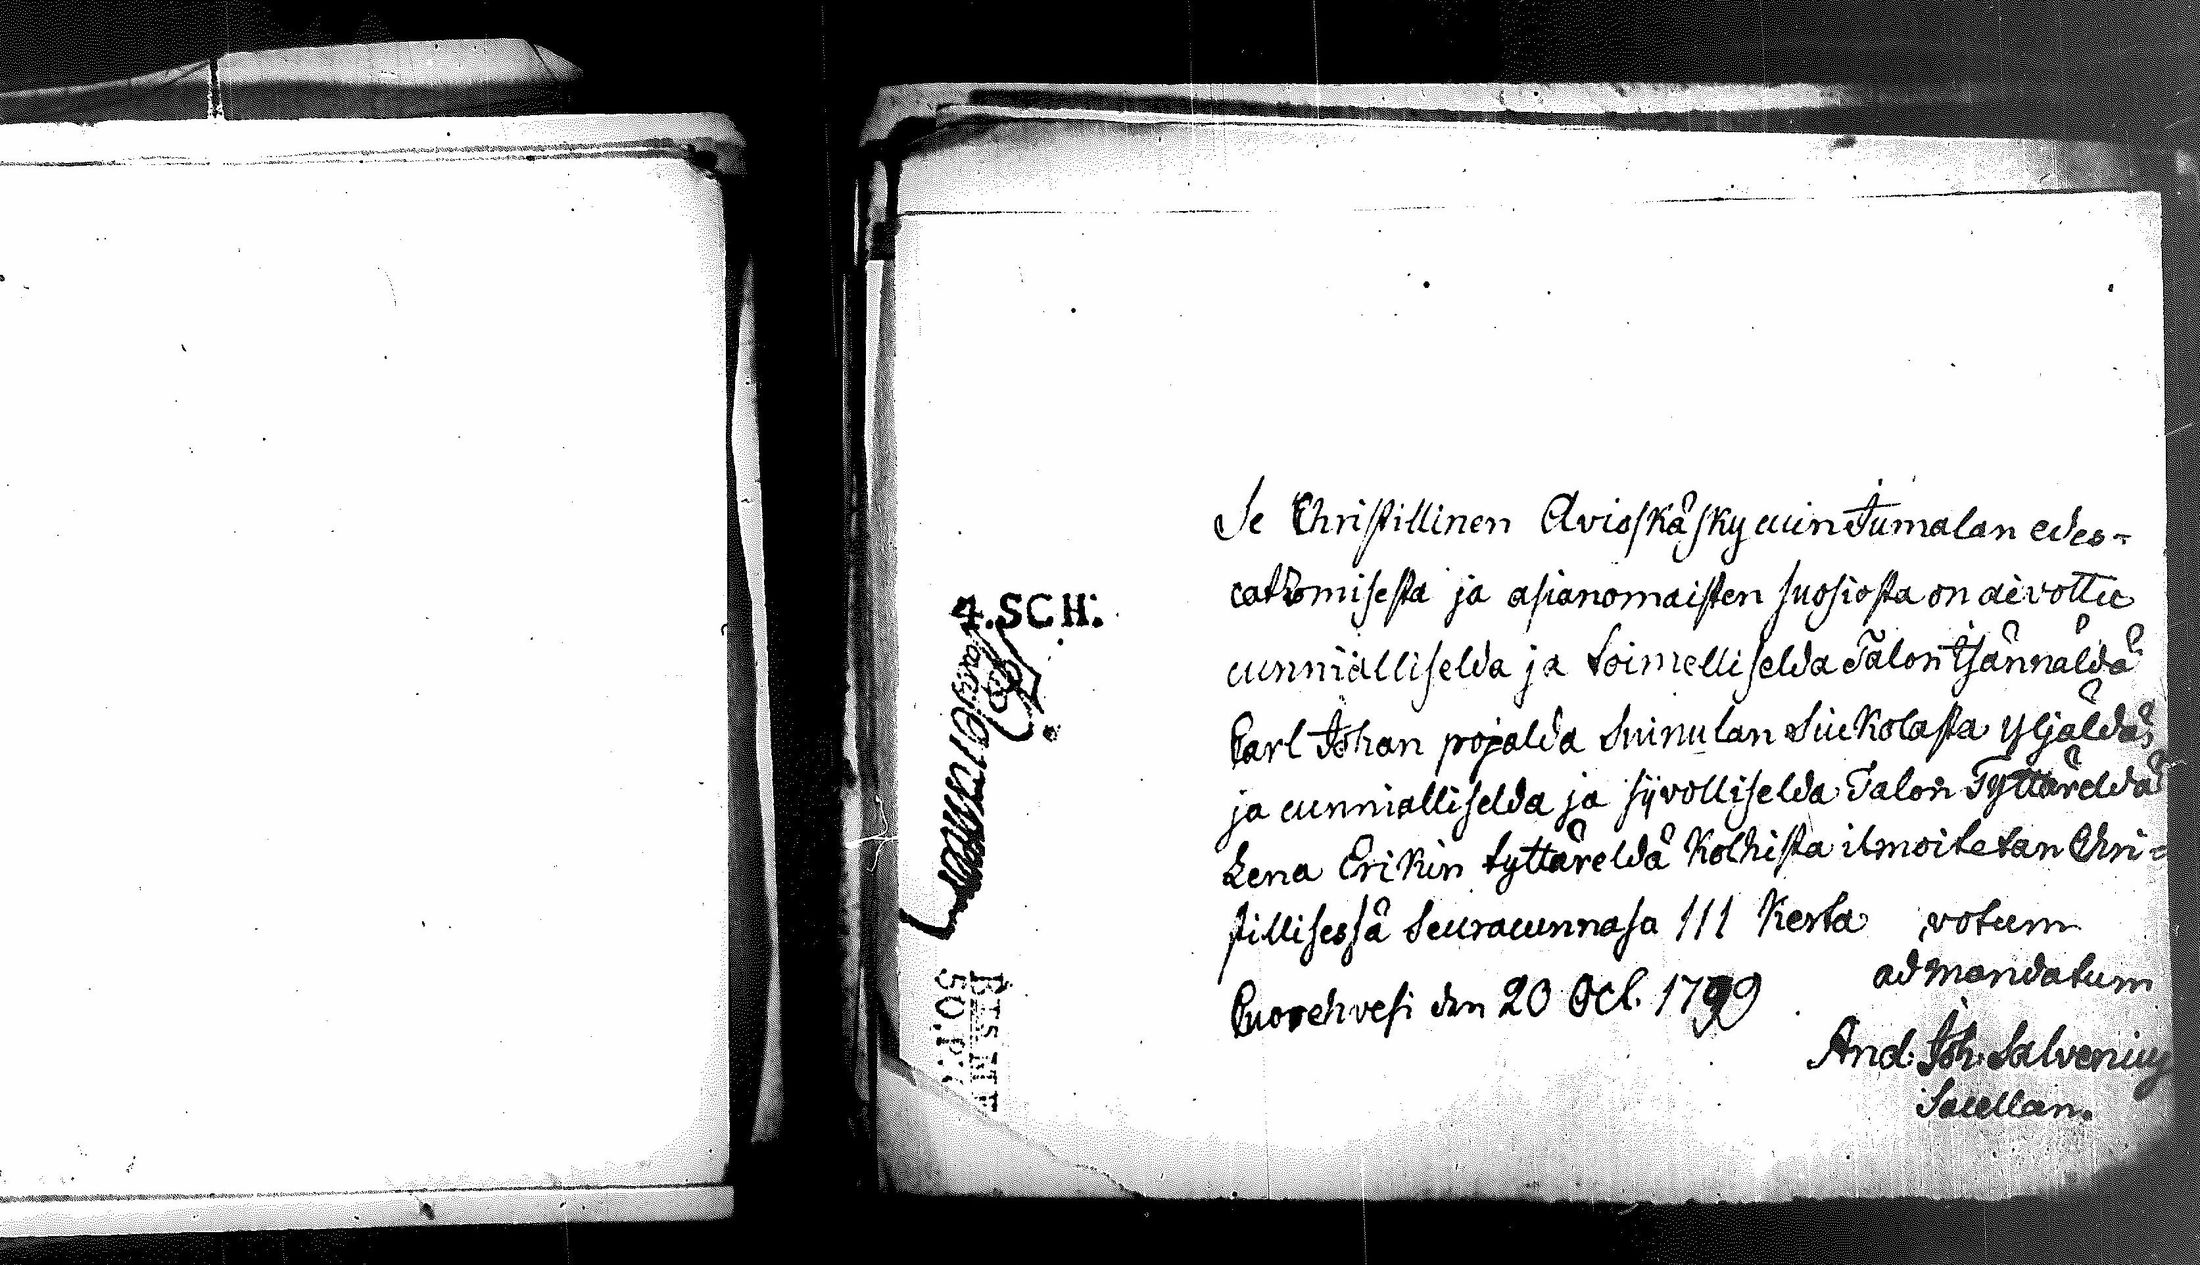 4.SCH.
Se Christillinen Avioskäsky cuin Jumalan edes-
catzomisesta ja asianomaisten suosiosta on aivottu
cunnialliselda ja toimelliselda Talon Isännäldä
Carl Johan pojalda Suinulan Siukolasta Yljäldä,
ja cunnialliselda ja siivolliselda Talon Tyttäreldä
Lena Erikin tyttäreldä Kolhista ilmoitetan Chri-
stillisessä Seuracunnasa 111 Kerta votum
ad mandatum
Cuorehvesi den 20 Oct. 1799
And. Joh. Salvenius
Sacellan.